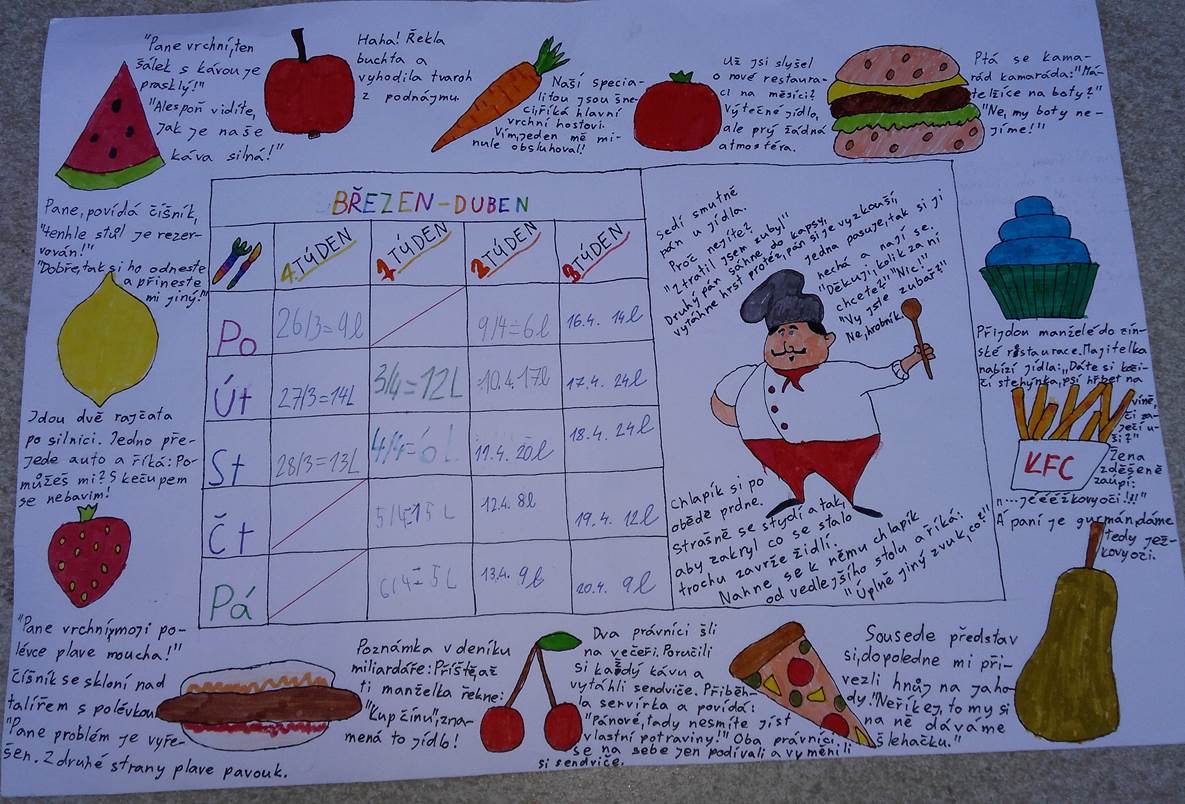 "Pane vrchní, ten
šálek s kávou je
prasklý!"
"Alespoň vidíte,
jak je naše
káva silná!"
Haha! Řekla
buchta a
vyhodila tvaroh
z podnájmu.
Naší specia-
litou jsou šne-
ci, říká hlavní
vrchní hostovi.
Vím, jeden mě mi-
nule obsluhoval!
Už jsi slyšel
o nové restaura-
ci na měsíci?
Výtečné jídlo,
ale prý žádná
atmosféra.
Ptá se kama-
rád kamaráda: "Má-
te lžíce na boty?"
"Ne, my boty ne-
jíme!"
Pane, povídá číšník,
"tenhle stůl je rezer-
vován!"
"Dobře, tak si ho odneste
a přineste
mi jiný!"
Jdou dvě rajčata
po silnici. Jedno pře-
jede auto a říká: Po-
můžeš mi? S kečupem
se nebavím!
BŘEZEN-DUBEN
4. TÝDEN
1 TÝDEN
2 TÝDEN
3 TÝDEN
Po
26/3=9l
9/4=6l
16.4. 14l
Út
27/3=14L
3/4=12L
10.4.17l
17.4. 24l
St
28/3=13L
4/4=6L
11.4. 20l
18.4. 24l
Čt
5/4=15L
12.4. 8l
19.4. 12l
Pá
6/4=5L
13.4. 9l
20.4. 9l
Sedí smutně
pán u jídla.
Proč nejíte?
"Ztratil jsem zuby!"
Druhý pán sáhne do kapsy,
vytáhne hrst protéz, pán si je vyzkouší,
jedna pasuje, tak si ji
nechá a nají se.
"Děkuji, kolik za ní
chcete?" "Nic!"
"Vy jste zubař?"
Ne, hrobník.
Chlapík si po
obědě prdne.
Strašně se stydí a tak,
aby zakryl co se stalo
trochu zavrže židlí.
Nahne se k němu chlapík
od vedlejšího stolu a říká:
"Úplně jiný zvuk, co?"
Přijdou manželé do čín-
ské restaurace. Majitelka
nabízí jídla: "Dáte si koči-
čí stehýnka, psí hřbet na
víně,
či za-
ječí u-
ši?"
Žena
zděšeně
zaúpí:
"...jééééžkovy oči!!!"
A paní je gurmán, dáme
tedy jež-
kovy oči.
KFC
"Pane vrchní, v mojí po-
lévce plave moucha!"
Číšník se skloní nad
talířem s polévkou
"Pane problém je vyře-
šen. Z druhé strany plave pavouk.
Poznámka v deníku
miliardáře: Příště, až
ti manželka řekne:
"Kup čínu", zna-
mená to jídlo!
Dva právníci šli
na večeři. Poručili
si každý kávu a
vytáhli sendviče. Přiběh-
la servírka a povídá:
"Pánové, tady nesmíte jíst
vlastní potraviny!" Oba právníci
se na sebe jen podívali a vyměnili
si sendviče.
Sousede představ
si, dopoledne mi při-
vezli hnůj na jaho-
dy. "Neříkej, to my si
na ně dáváme
šlehačku."